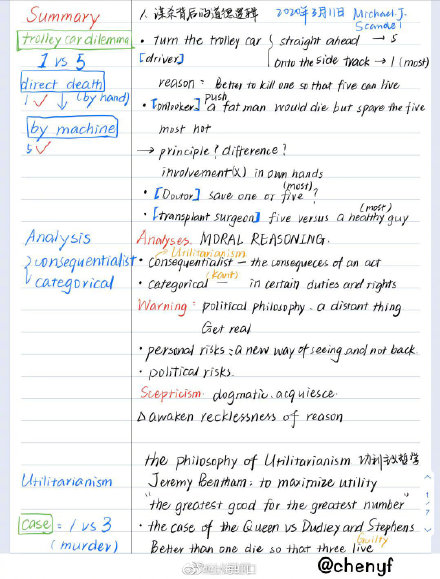 Summary
1. 谋杀背后的道德逻辑 2020年3月11日 Michael. J. Scandel
trolley car dilemma
1 vs 5
direct death
1 ✓ ↓ (by hand)
by machine
5 ✓
• turn the trolley car { straight ahead → 5
[driver] onto the side track → 1 (most)
reason: Better to kill one so that five can live
• [onlooker] push a fat man would die but spare the five
most not
→ principle? difference?
involvement(X) in own hands
• [Doctor] save one or five (most)?
• [transplant surgeon] five versus a healthy guy (most)
Analysis
{ consequentialist
categorical
Analyses. MORAL REASONING.
Utilitarianism
• consequentialist — the consequeces of an act
(Kant)
• categorical — in certain duties and rights
Warning: political philosophy. a distant thing
Get real
• personal risks: a new way of seeing and not back.
• political risks.
Scepticism dogmatic. acquiesce.
△ awaken recklessness of reason
the philosophy of Utilitarianism 功利主义哲学
Utilitarianism
Jeremy Bentham: to maximize utility
"the greatest good for the greatest number"
case = 1 vs 3
(murder)
• the case of the Queen vs Dudley and Stephens
Guilty
Better than one die so that three live
@chenyf